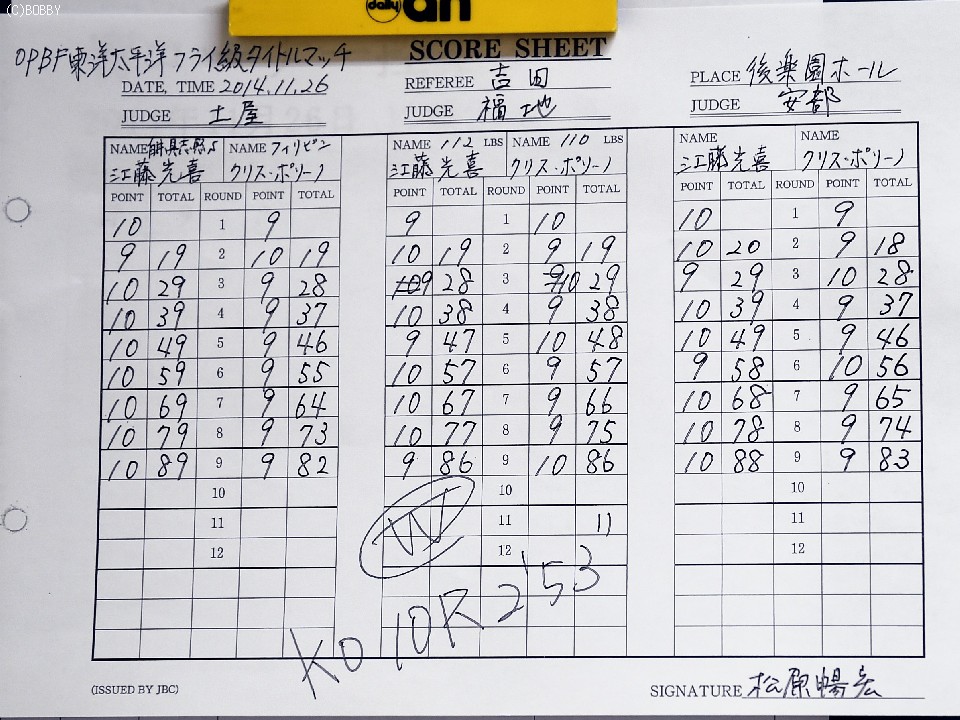 (C)BOBBY
daily an
SCORE SHEET
OPBF東洋太平洋フライ級タイトルマッチ
DATE, TIME 2014.11.26 REFEREE 吉田 PLACE 後楽園ホール
JUDGE 土屋 JUDGE 福地 JUDGE 安部
NAME NAME フィリピン NAME 112 LBS NAME 110 LBS NAME NAME
江藤光喜 クリス・ポリーノ 江藤光喜 クリス・ポリーノ 江藤光喜 クリス・ポリーノ
POINT TOTAL ROUND POINT TOTAL POINT TOTAL ROUND POINT TOTAL POINT TOTAL ROUND POINT TOTAL
10 1 9 9 1 10 10 1 9
9 19 2 10 19 10 19 2 9 19 10 20 2 9 18
10 29 3 9 28 109 28 3 910 29 9 29 3 10 28
10 39 4 9 37 10 38 4 9 38 10 39 4 9 37
10 49 5 9 46 9 47 5 10 48 10 49 5 9 46
10 59 6 9 55 10 57 6 9 57 9 58 6 10 56
10 69 7 9 64 10 67 7 9 66 10 68 7 9 65
10 79 8 9 73 10 77 8 9 75 10 78 8 9 74
10 89 9 9 82 9 86 9 10 86 10 88 9 9 83
10 10 10
11 W 11 11 11
12 12 12
KO 10R 2'53
(ISSUED BY JBC) SIGNATURE 松原暢宏